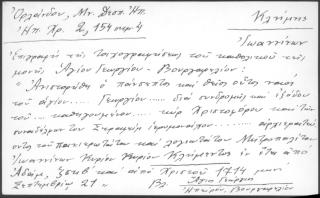 Ὀρλάνδου, Μν. Δεσπ. Ἠπ. Κλήμης
Ἠπ. Χρ. 2, 154 σημ. 4 Ἰωαννίνων
Ἐπιγραφὴ τῆς τοιχογραφήσεως τοῦ καθολικοῦ τῆς
μονῆς Ἁγίου Γεωργίου - Βουργαρελίου:
" Ἀνιστορήθη ὁ πάνσεπτος καὶ θεῖος οὗτος ναὸς
τοῦ ἁγίου ..... Γεωργίου ..... διὰ συνδρομῆς καὶ ἐξόδου
τοῦ ... καθηγουμένου ..... κὺρ Χριστοφόρου καὶ τῶν
συναδέλφων τοῦ Σεραφεὶμ ἱερομονάχου ..... ἀρχιερατεύ
οντος τοῦ πανιερωτάτου καὶ λογιωτάτου Μητροπολίτου
Ἰωαννίνων Κυρίου Κυρίου Κλήμεντος ἐν ἔτει ἀπὸ
Ἀδάμ, ζσκβ΄ καὶ ἀπὸ Χριστοῦ 1714 μηνὶ
Σεπτεμβρίῳ 21 " Βλ. Ἅγιο Γεώργιο
Ἠπείρου, Βουργαρέλιον